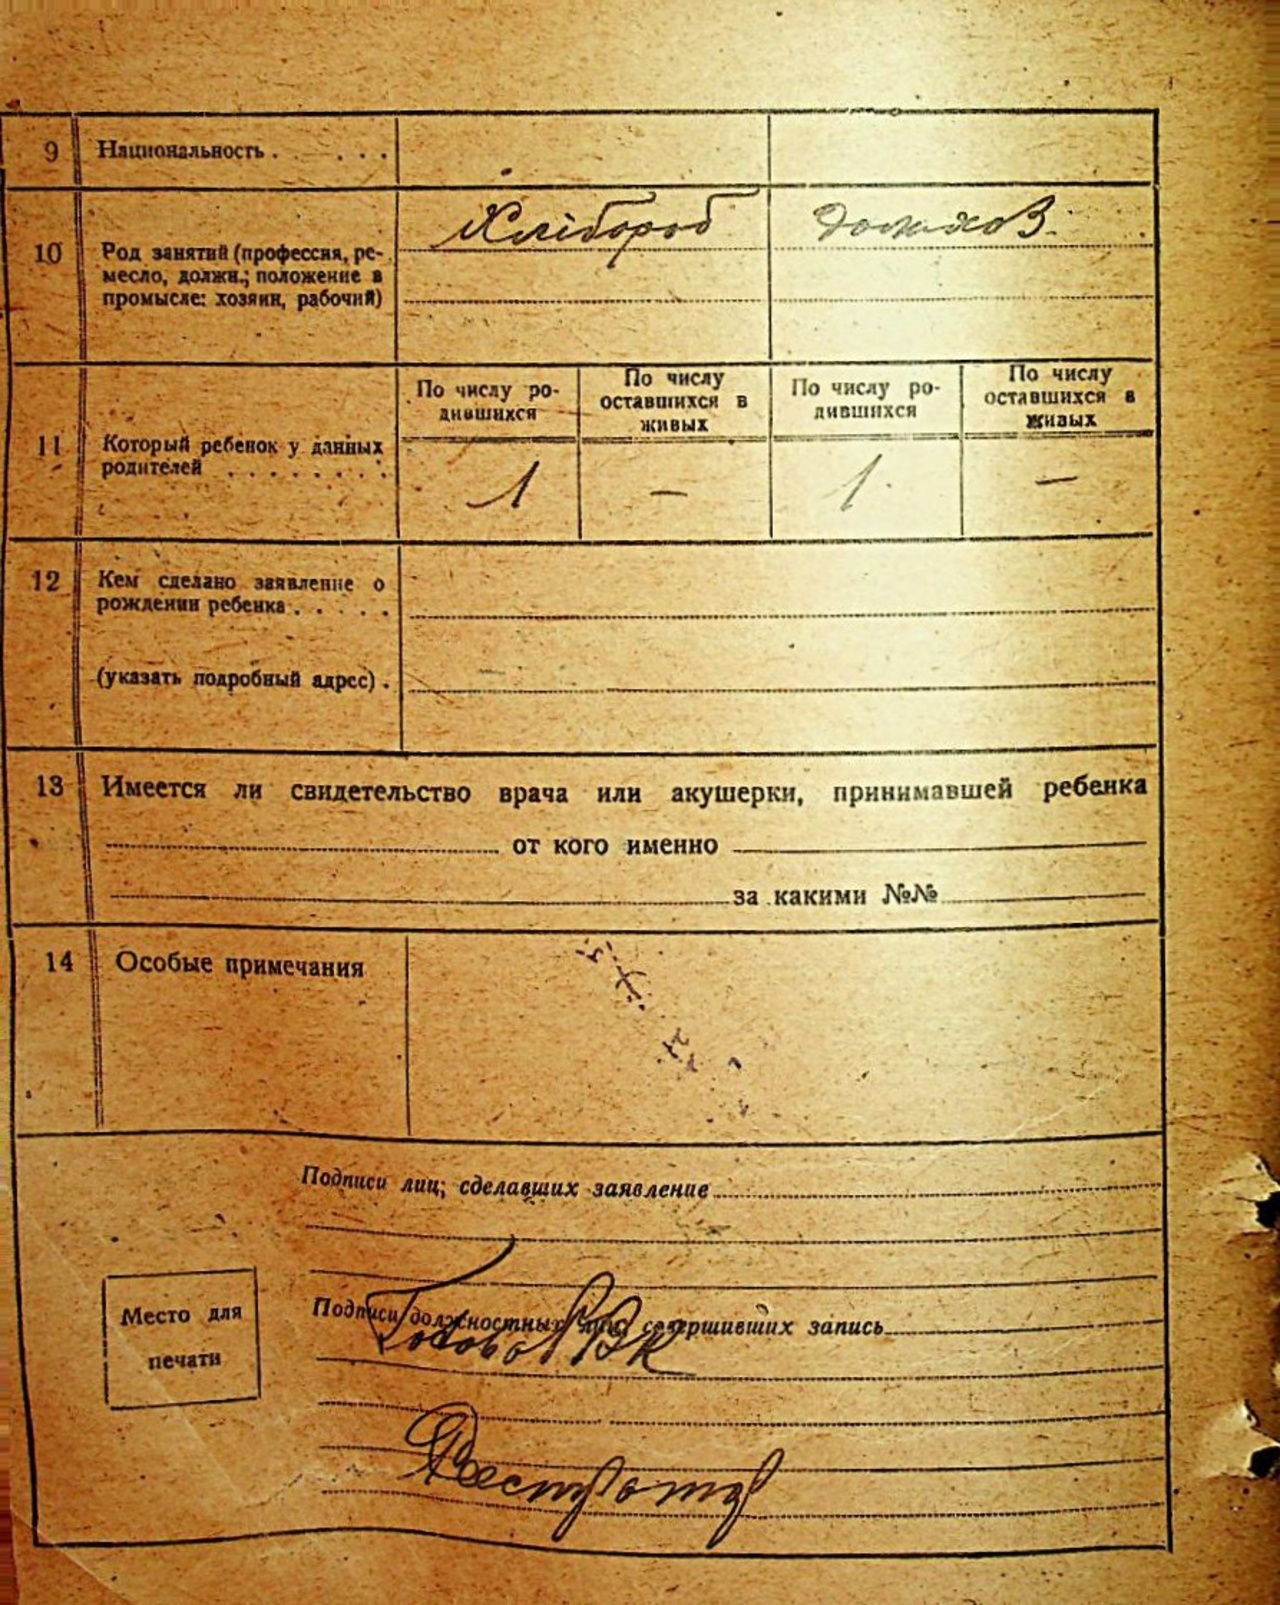 9 Национальность . . . .
Хлібороб Домхоз.
10 Род занятий (профессия, ре-
месло, должн.; положение в
промысле: хозяин, рабочий)
По числу ро-
дившихся
По числу
оставшихся в
живых
По числу ро-
дившихся
По числу
оставшихся в
живых
11 Который ребенок у данных
родителей . . . . . . . .
1 — 1. —
12 Кем сделано заявление о
рождении ребенка . . . . .
(указать подробный адрес) .
13 Имеется ли свидетельство врача или акушерки, принимавшей ребенка
от кого именно
за какими №№
14 Особые примечания
Подписи лиц; сделавших заявление
Подписи должностных лиц, совершивших запись
Место для
печати